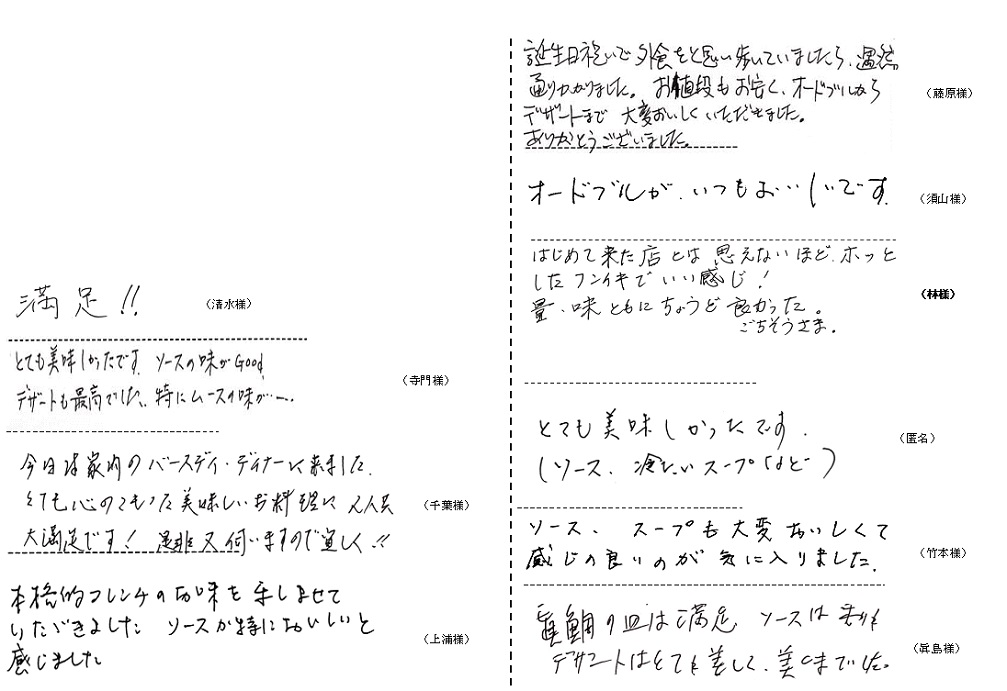 満足!!
（清水様）
とても美味しかったです ソースの味がGood
デザートも最高でした、特にムースの味が…。
（寺門様）
今日は家内のバースディ・ディナーに来ました。
とても心のこもった美味しいお料理に2人共
大満足です! 是非又伺いますので宜しく!!
（千葉様）
本格的フレンチのお味を楽しませて
いただきました ソースが特においしいと
感じました
（上浦様）
誕生日祝いで外食をと思い歩いていましたら、偶然
通りかかりました。お値段もお安く、オードブルから
デザートまで 大変おいしくいただきました。
ありがとうございました。
（藤原様）
オードブルが、いつもおいしいです。
（須山様）
はじめて来た店とは思えないほど、ホッと
したフンイキでいい感じ!
量・味ともにちょうど良かった。
ごちそうさま。
（林様）
とても美味しかったです。
（ソース、冷たいスープなど）
（匿名）
ソース、スープも大変おいしくて
感じの良いのが気に入りました。
（竹本様）
真鯛の皿は満足 ソースは
デザートはとても美しく、でした。
（眞島様）